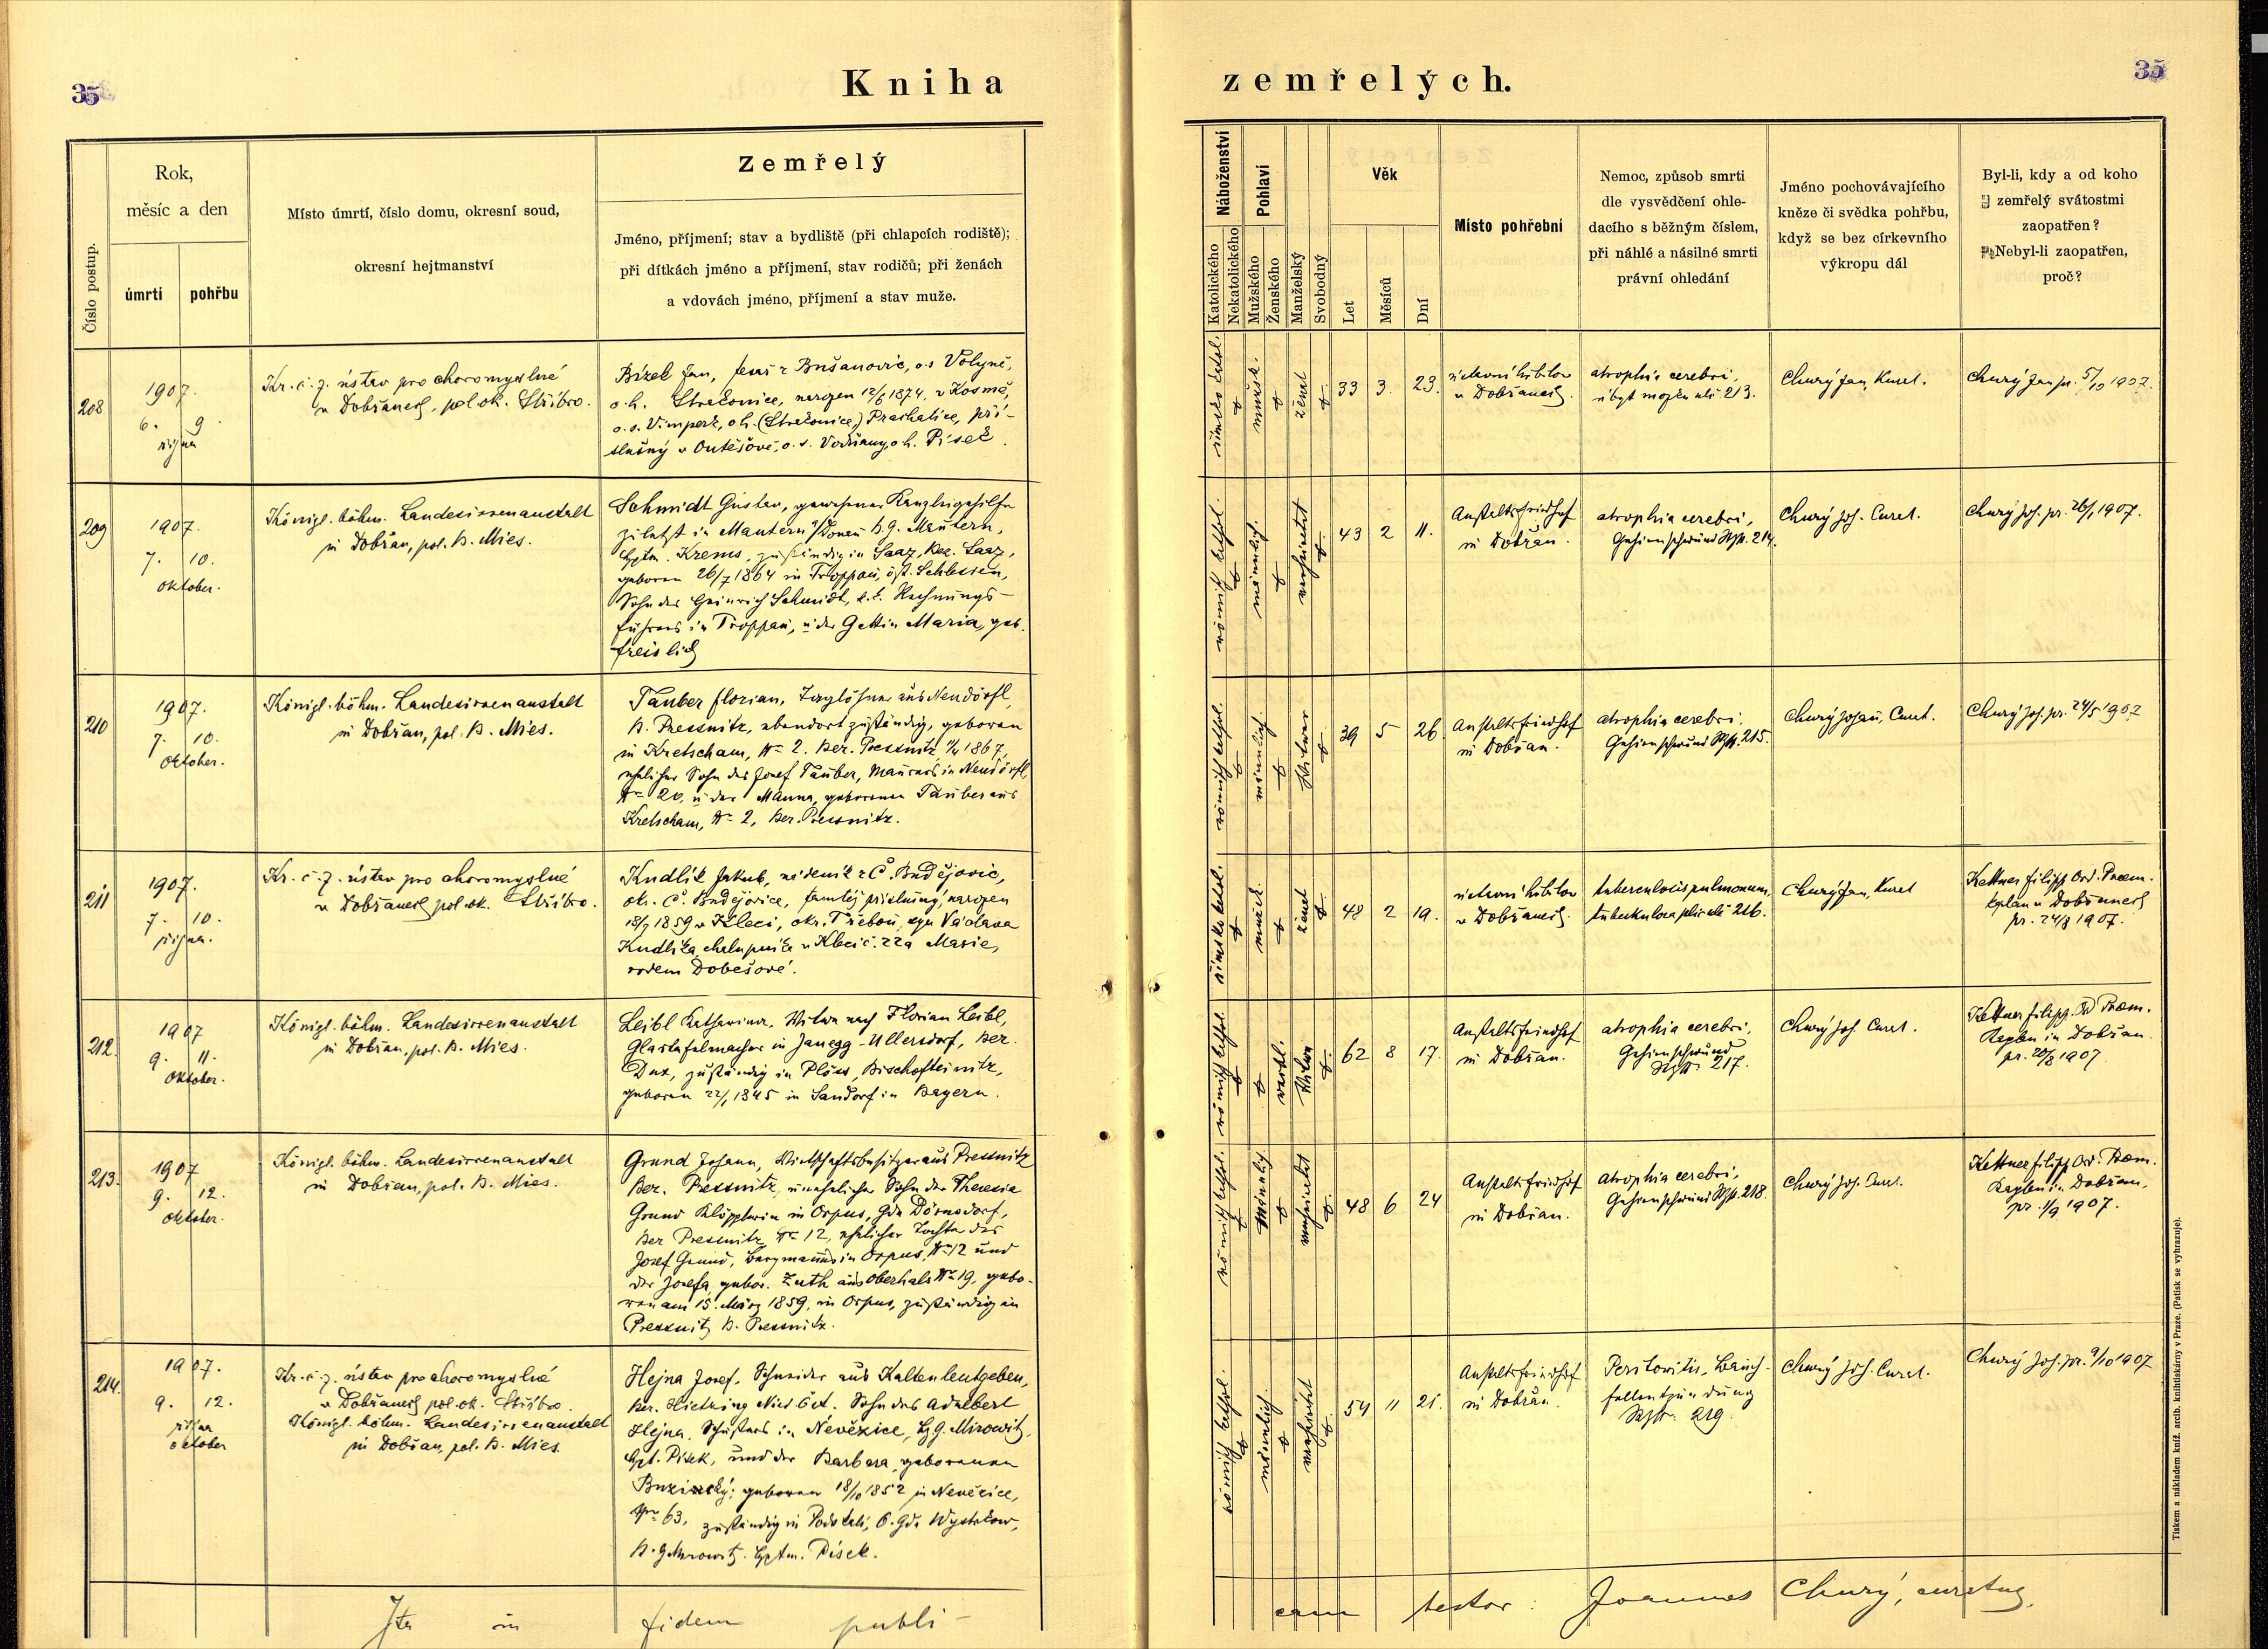 35
Kniha
zemřelých.
35
Číslo postup.
Rok,
měsíc a den
úmrtí
pohřbu
Místo úmrtí, číslo domu, okresní soud,
okresní hejtmanství
Zemřelý
Jméno, příjmení; stav a bydliště (při chlapcích rodiště);
při dítkách jméno a příjmení, stav rodičů; při ženách
a vdovách jméno, příjmení a stav muže.
Náboženství
Katolického
Nekatolického
Pohlaví
Mužského
Ženského
Manželský
Svobodný
Věk
Let
Měsíců
Dní
Místo pohřební
Nemoc, způsob smrti
dle vysvědčení ohle-
dacího s běžným číslem,
při náhlé a násilné smrti
právní ohledání
Jméno pochovávajícího
kněze či svědka pohřbu,
když se bez církevního
výkropu dál
Byl-li, kdy a od koho
zemřelý svátostmi
zaopatřen?
Nebyl-li zaopatřen,
proč?
208
1907.
6. 9.
října
Kr. č. z. ústav pro choromyslné
v Dobřanech, pol. ok. Stříbro.
Bízek Jan, z Bušanovic, o. s. Volyně,
o. h. Strakonice, narozen 12/6 1874, v Kosmě,
o. s. Vimperk, o. h. (Strakonice) Prachatice, pří-
slušný v Outěšově, o. s. Vodňany, o. h. Písek.
římsko katol.
mužsk.
ženat
33 3. 23.
ústavní hřbitov
v Dobřanech.
atrophia cerebri,
úbyt mozku 213.
Churý Jan, Kurat.
Churý Jan pr. 5/10 1907.
209
1907.
7. 10.
Oktober.
Königl. böhm. Landesirrenanstalt
in Dobřan, pol. B. Mies.
Schmidt Gustav, gewesener Kanzleigehilfe
zuletzt in Mautern a/Donau B. G. Mautern,
Hptm. Krems, zuständig in Saaz, Bez. Saaz,
geboren 26/7 1864 in Troppau, öst. Schlesien,
Sohn des Heinrich Schmidt, k. k. Rechnungs-
führers in Troppau, u. der Gattin Maria, geb.
Freislich
römisch kathol.
männlich.
verheiratet
43 2 11.
Anstaltsfriedhof
in Dobřan.
atrophia cerebri,
Gehirnschwund 214.
Churý Joh. Curat.
Churý Joh. pr. 26/1 1907.
210
1907.
7. 10.
Oktober.
Königl. böhm. Landesirrenanstalt
in Dobřan, pol. B. Mies.
Tauber Florian, Taglöhner aus Neudörfl,
B. Pressnitz, ebendort zuständig, geboren
in Kretscham, Nr. 2. Bez. Pressnitz 1867,
ehelicher Sohn des Josef Tauber, Maurers in Neudörfl,
Nr. 20, u. der M. Anna, geborenen Tauber aus
Kretscham, Nr. 2, Bez. Pressnitz.
römisch kathol.
männlich.
Witwer
39 5 26
Anstaltsfriedhof
in Dobřan.
atrophia cerebri.
Gehirnschwund 215.
Churý Johann, Curat.
Churý Joh. pr. 24/5 1907
211
1907.
7. 10.
října.
Kr. č. z. ústav pro choromyslné
v Dobřanech pol. ok. Stříbro.
Kudlík Jakub, nádeník z Č. Budějovic,
ok. Č. Budějovice, tamtéž příslušný, narozen
18/7 1859 v Kleci, okr. Třeboň, syn Václava
Kudlíka, chalupníka v Kleci č. 22 a Marie,
rodem Dobešové.
římsko katol.
mužsk.
ženat
48 2 19.
ústavní hřbitov
v Dobřanech.
tuberculosis pulmonum,
tuberkulosa plic 216.
Churý Jan, Kurat
Kettner Filipp Ord. Praem.
kaplan v Dobřanech
pr. 24/8 1907.
212.
1907
9. 11.
Oktober.
Königl. böhm. Landesirrenanstalt
in Dobřan, pol. B. Mies.
Leibl Katharina, Witwe nach Florian Leibl,
Glastafelmacher in Janegg-Ullersdorf, Bez.
Dux, zuständig in Plöss, Bischofteinitz,
geboren 22/1 1845 in Sandorf in Bayern.
römisch kathol.
weibl.
Witwe
62 8 17.
Anstaltsfriedhof
in Dobřan.
atrophia cerebri,
Gehirnschwund
217.
Churý Joh. Curat.
Kettner Filipp. Ord Praem.
Kaplan in Dobřan
pr. 20/8 1907
213.
1907
9. 12.
Oktober.
Königl. böhm. Landesirrenanstalt
in Dobřan, pol. B. Mies.
Grund Johann, Wirtschaftsbesitzer aus Pressnitz
Bez. Pressnitz, unehelicher Sohn der Theresia
Grund Klöpplerin in Orpus, Gde Dörnsdorf,
Bez Pressnitz Nr. 12, ehelicher Tochter des
Josef Grund, Bergmanns in Orpus, Nr. 12 und
der Josefa, gebor. Zuth aus Oberhals Nr. 19, gebo-
ren am 15. März 1859, in Orpus, zuständig in
Pressnitz B. Pressnitz.
römisch kathol.
Männlich
verheiratet
48 6 24
Anstaltsfriedhof
in Dobřan.
atrophia cerebri,
Gehirnschwund 218.
Churý Joh. Curat.
Kettner Filipp Ord. Praem.
Kaplan in Dobřan,
pr. 1/9 1907.
214.
1907.
9. 12.
října
October
Kr. č. z. ústav pro choromyslné
v Dobřanech pol. ok. Stříbro
Königl. böhm. Landesirrenanstalt
in Dobřan, pol. B. Mies.
Hejna Josef, Schneider aus Kaltenleutgeben,
Bez. Hietzing Nied. Öst. Sohn des Adalbert
Hejna, Schusters in Nevězice, Bz. G. Mirowitz,
Hpt. Pisek, und der Barbara, geborenen
geboren 18/10 1852 in Nevězice,
Nr. 63, zuständig in O. Gde
B. G. Mirowitz. Hptm. Pisek.
römisch kathol.
männlich.
verheiratet
54 11 21.
Anstaltsfriedhof
in Dobřan.
Peritonitis, Bauch-
fellentzündung
219.
Churý Joh. Curat.
Churý Joh. pr. 9/10 1907
Ita in fidem publi-
cam testor: Joannes Churý, curatus,
Tiskem a nákladem kníž. arcib. knihtiskárny v Praze. (Patisk se vyhrazuje).